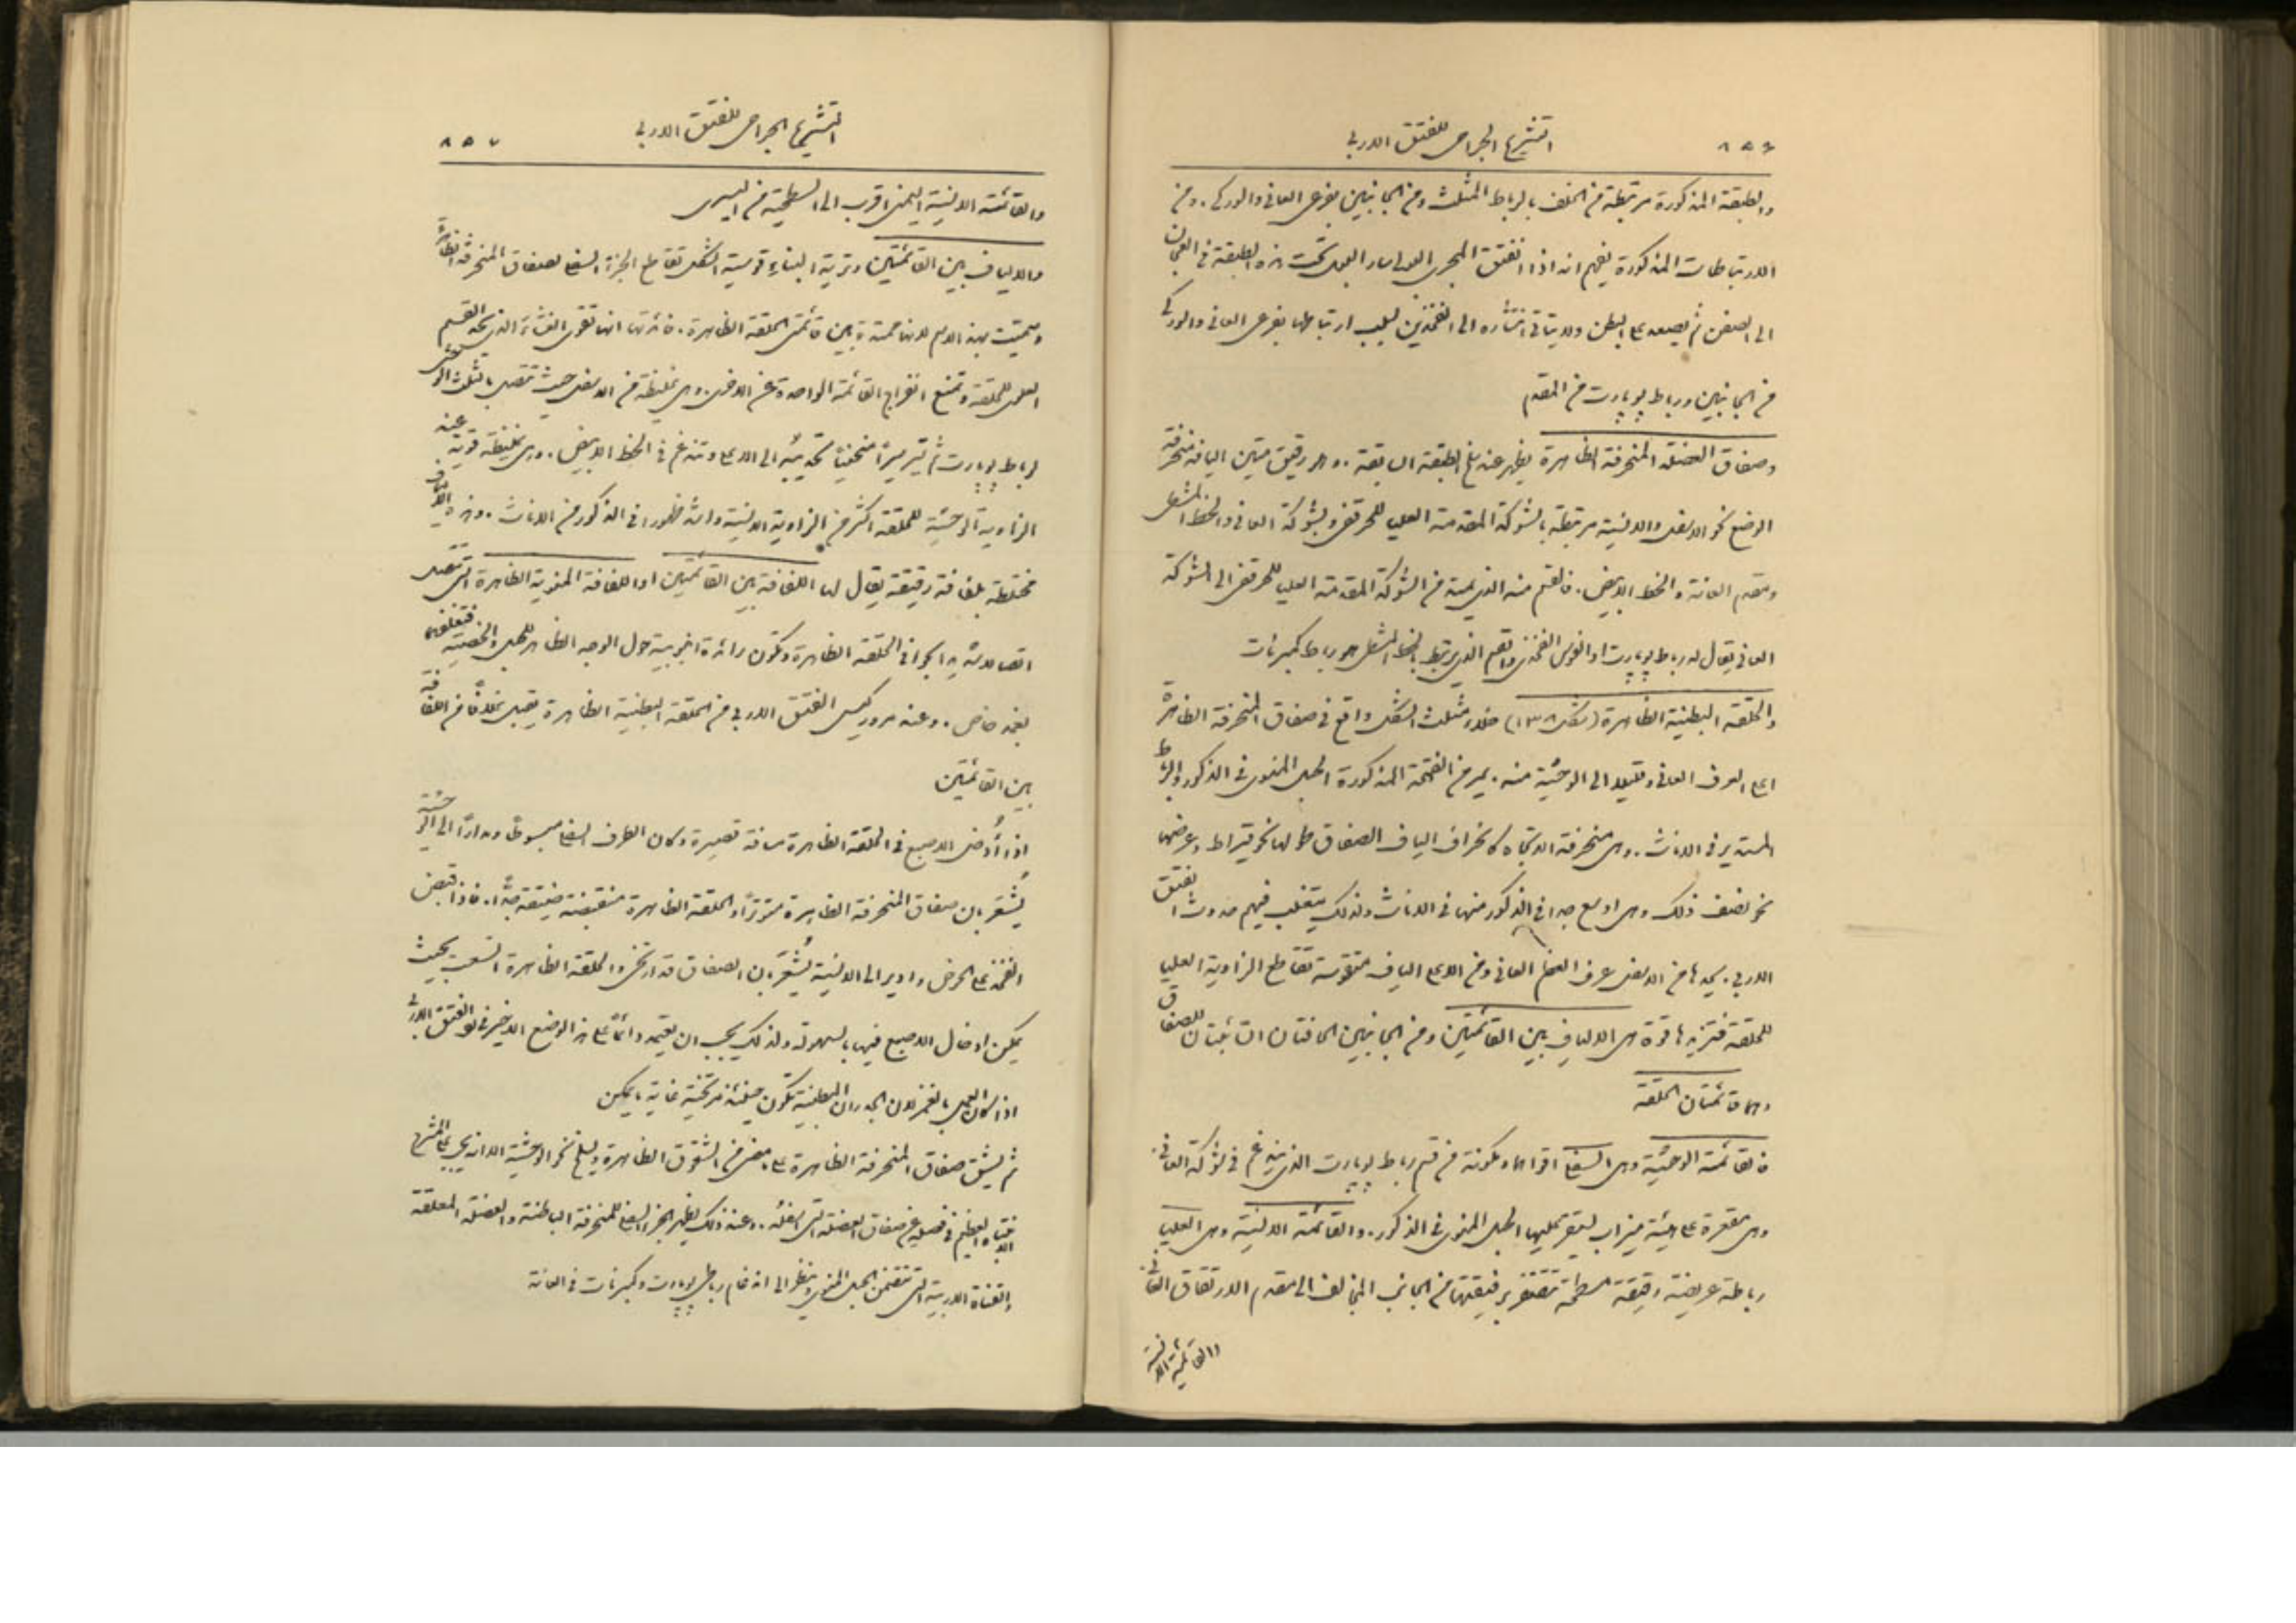 ٨٥٦
التشريح الجراحي للفتق الاربي
والطبقة المذكورة مرتبطة من الخلف بالرباط المثلث ومن الجانبين بفرعي العاني والوركي. ومن
الارتباطات المذكورة يفهم انه اذا انفتق المجرى البولي سار البول تحت هذه الطبقة في العجان
الى الصفن ثم يصعد على البطن ولا يتاتى انتشاره الى الفخذين لسبب ارتباطها بفرعي العاني والوركي
من الجانبين ورباط پوپارت من المقدم
وصفاق العضلة المنحرفة الظاهرة يظهر عند نزع الطبقة السابقة. وهو رقيق متين اليافه منحرفة
الوضع نحو الاسفل والانسية مرتبطة بالشوكة المقدمة العليا للحرقفي وبشوكة العاني والخط المشطي
ومقدم العانة والخط الابيض. فالقسم منه الذي يمتد من الشوكة المقدمة العليا للحرقفي الى الشوكة
العاني يقال له رباط پوپارت او القوس الفخذي والقسم الذي يرتبط بالخط المشطي هو رباط كمبرنات
والحلقة البطنية الظاهرة (شكل ١٣٨) خلاء مثلث الشكل واقع في صفاق المنحرفة الظاهرة
اعلى العرف العاني وقليلا الى الوحشية منه. يمر من الفتحة المذكورة الحبل المنوي في الذكور والرباط
المستدير في الاناث. وهي منحرفة الاتجاه كانحراف الياف الصفاق طولها نحو قيراط وعرضها
نحو نصف ذلك وهي اوسع جدا في الذكور منها في الاناث ولذلك يتغلب فيهم حدوث الفتق
الاربي. يحدها من الاسفل عرف العظم العاني ومن الاعلى الياف متقوسة تقاطع الزاوية العليا
للحلقة فتزيدها قوة هي الالياف بين القائمتين ومن الجانبين الحافتان السائبتان للصفاق
وهما قائمتان الحلقة
فالقائمة الوحشية وهي السفلى اقواهما ومكونة من قسم رباط پوپارت الذي يندغم في شوكة العاني.
وهي مقعرة على هيئة ميزاب ليستقر عليها الحبل المنوي في الذكور. والقائمة الانسية وهي العليا
رباطة عريضة رقيقة مسطحة تتقاطع برفيقتها من الجانب المخالف الى مقدم الارتفاق العاني.
والقائمة الانسية
التشريح الجراحي للفتق الاربي
٨٥٧
والقائمة الانسية اليمنى اقرب الى السطحية من اليسرى
والالياف بين القائمتين وترية البناء قوسية الشكل تقاطع الجزء السفلي لصفاق المنحرفة الظاهرة
وسميت بهذا الاسم لانها ممتدة بين قائمتي الحلقة الظاهرة. فائدتها انها تقوي الغشاء الذي يحد القسم
العلوي للحلقة وتمنع انفراج القائمة الواحدة عن الاخرى. وهي غليظة من الاسفل حيث تتصل بالثلث الوحشي
لرباط پوپارت ثم تسير سيرا منحنيا تحديبه الى الاعلى وتندغم في الخط الابيض. وهي غليظة قوية عند
الزاوية الوحشية للحلقة اكثر من الزاوية الانسية واشد ظهورا في الذكور من الاناث. وهذه الالياف
مختلطة بلفافة رقيقة يقال لها اللفافة بين القائمتين او اللفافة المنوية الظاهرة التي تتصل
اتصالا شديدا بحوافي الحلقة الظاهرة وتكون زائدة انبوبية حول الوجه الظاهر للحبل والخصية فتغلفهما
بغمد خاص. وعند مرور كيس الفتق الاربي من الحلقة البطنية الظاهرة يقبل غلافا من اللفافة
بين القائمتين
اذا أُدخل الاصبع في الحلقة الظاهرة مسافة قصيرة وكان الطرف السفلي مبسوطا ومدارا الى الوحشية
يُشعَر بان صفاق المنحرفة الظاهرة متوترا والحلقة الظاهرة منقبضة ضيقة جدا. فاذا قبض
الفخذ على الحوض وادير الى الانسية يُشعَر بان الصفاق قد ارتخى والحلقة الظاهرة اتسعت بحيث
يمكن ادخال الاصبع فيها بسهولة ولذلك يجب ان يعتمد دائما على هذا الوضع الاخير في الفتق الاربي
اذا كان العمل بالغمز لان الجدران البطنية تكون حينئذ مرتخية غاية ما يمكن
ثم يشق صفاق المنحرفة الظاهرة على الشقوق الظاهرة ويسلخ نحو الوحشية الا انه يجب على المشرح
الانتباه العظيم في فصله عن صفاق العضلة التي اسفله. وعند ذلك يظهر الجزء السفلي للمنحرفة الباطنة والعضلة المعلقة
والقناة الاربية التي تتضمن الحبل المنوي وينظر الى اندغام رباطي پوپارت وكمبرنات في العانة